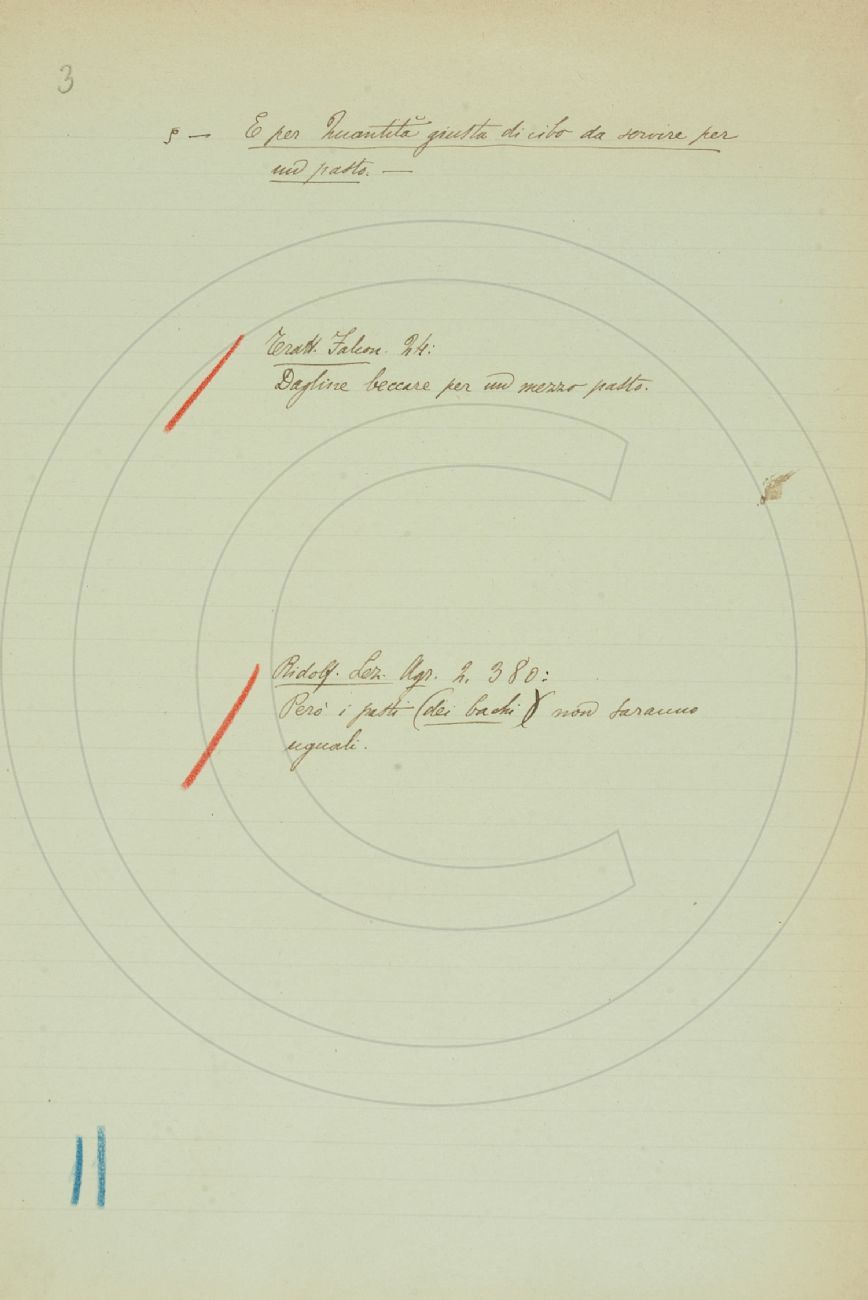 3
§ — E per Quantità giusta di cibo da servire per
un pasto. —
Tratt. Falcon. 24:
Dagline beccare per un mezzo pasto.
Ridolf. Lez. Agr. 2. 380:
Però i pasti (dei bachi) non saranno
uguali.
11